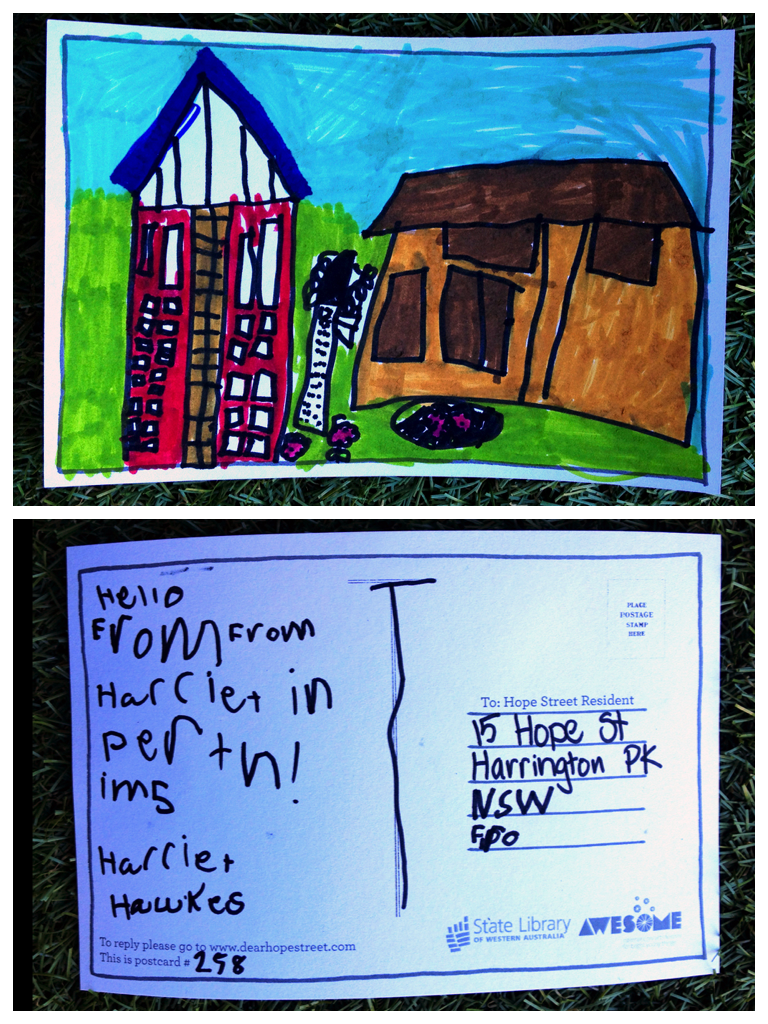 Hello
From From
Harriet in
perth!
im5
Harriet
Hawkes
To reply please go to www.dearhopestreet.com
This is postcard # 258
PLACE
POSTAGE
STAMP
HERE
To: Hope Street Resident
15 Hope St
Harrington PK
NSW
State Library
OF WESTERN AUSTRALIA
AWESOME